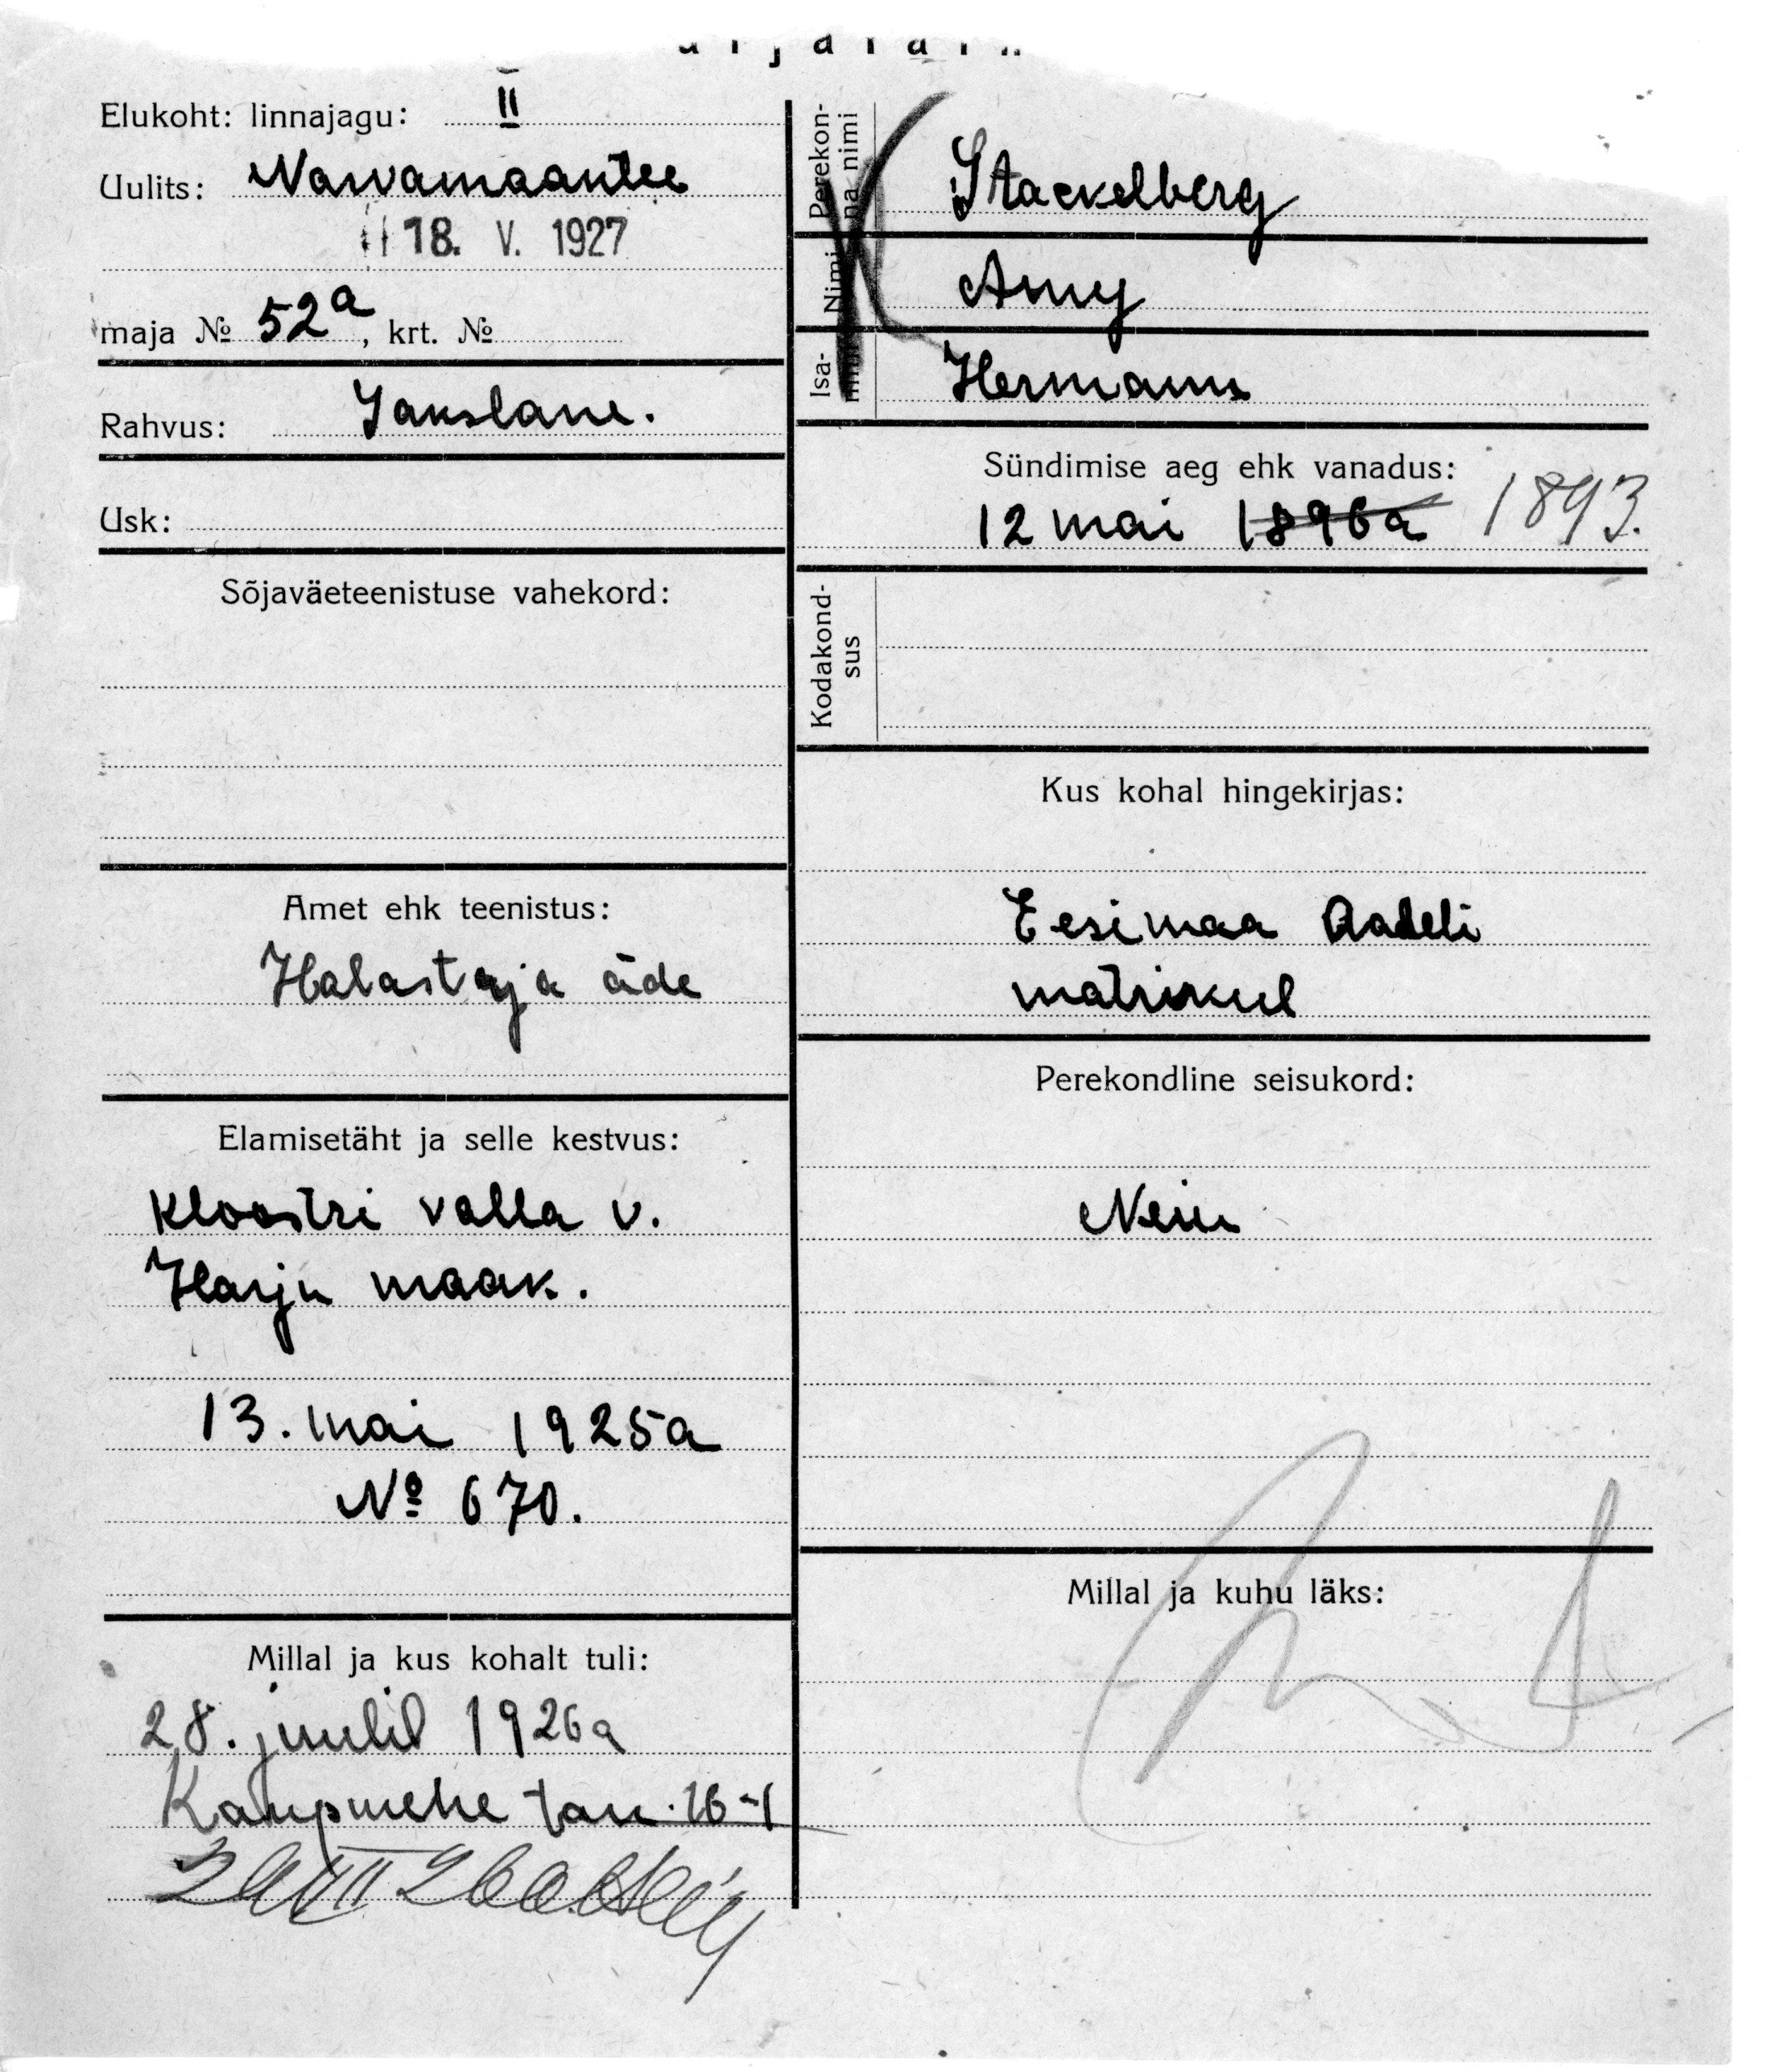 Elukoht: linnajagu: II
Uulits: Narvamaantee
18. V. 1927
maja № 52a, krt. №
Rahvus: Sakslane.
Usk:
Sõjaväeteenistuse vahekord:
Amet ehk teenistus:
Halastaja õde
Elamisetäht ja selle kestvus:
Kloostri valla v.
Harju maak.
13. mai 1925a
№ 670.
Millal ja kus kohalt tuli:
28. juulil 1926a
Kaupmehe tän. 16-1
Perekonna nimi
Stackelberg
Nimi
Amy
Isa-
Hermann
Sündimise aeg ehk vanadus:
12 mai 1896a 1893.
Kodakond-
sus
Kus kohal hingekirjas:
Eesimaa Aadeli
matrikul
Perekondline seisukord:
Neiu
Millal ja kuhu läks: